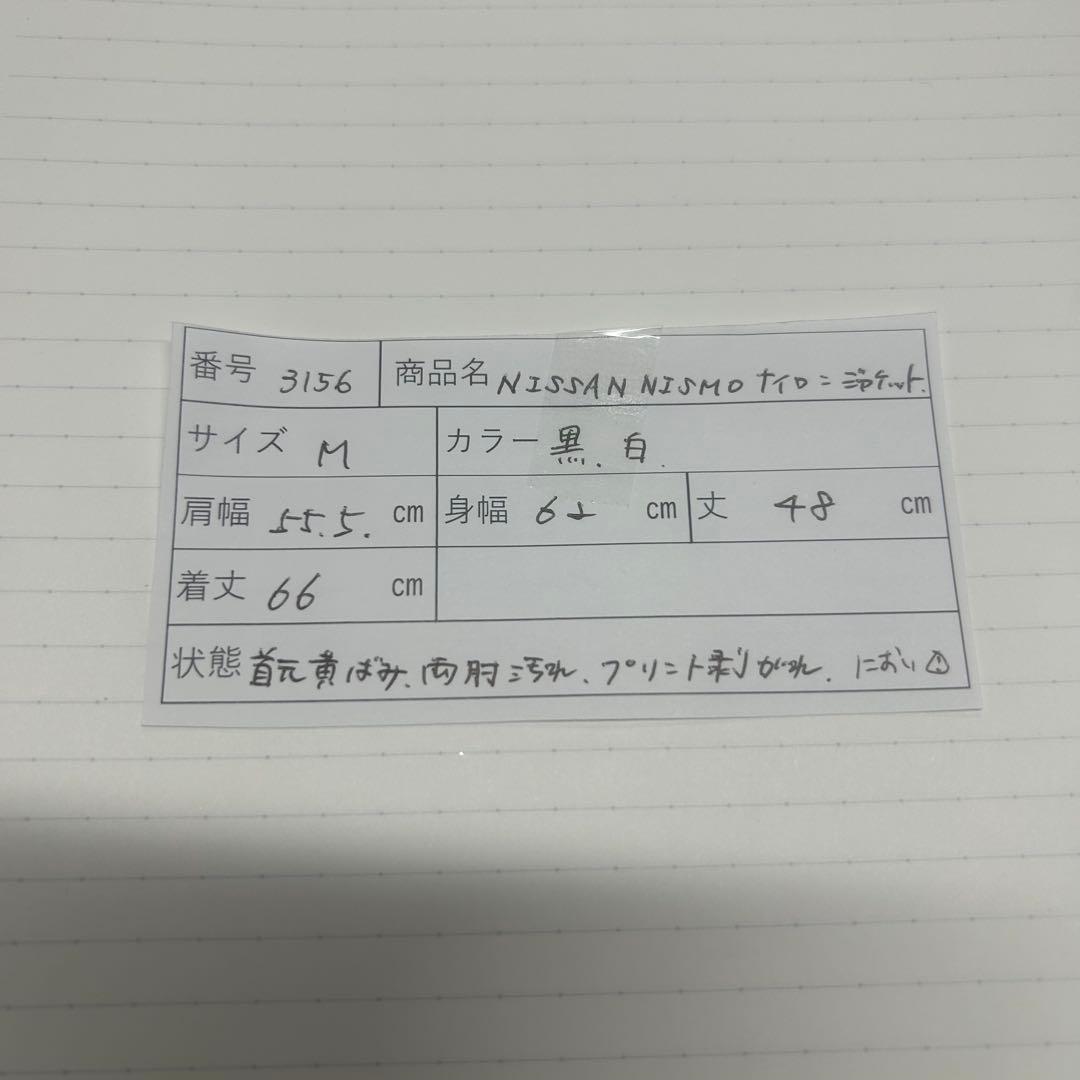 番号 3156 商品名 NISSAN NISMO ナイロンジャケット.
サイズ M カラー 黒、白.
肩幅 55.5. cm 身幅 62 cm 丈 48 cm
着丈 66 cm
状態 首元黄ばみ、両肘汚れ、プリント剥がれ. におい